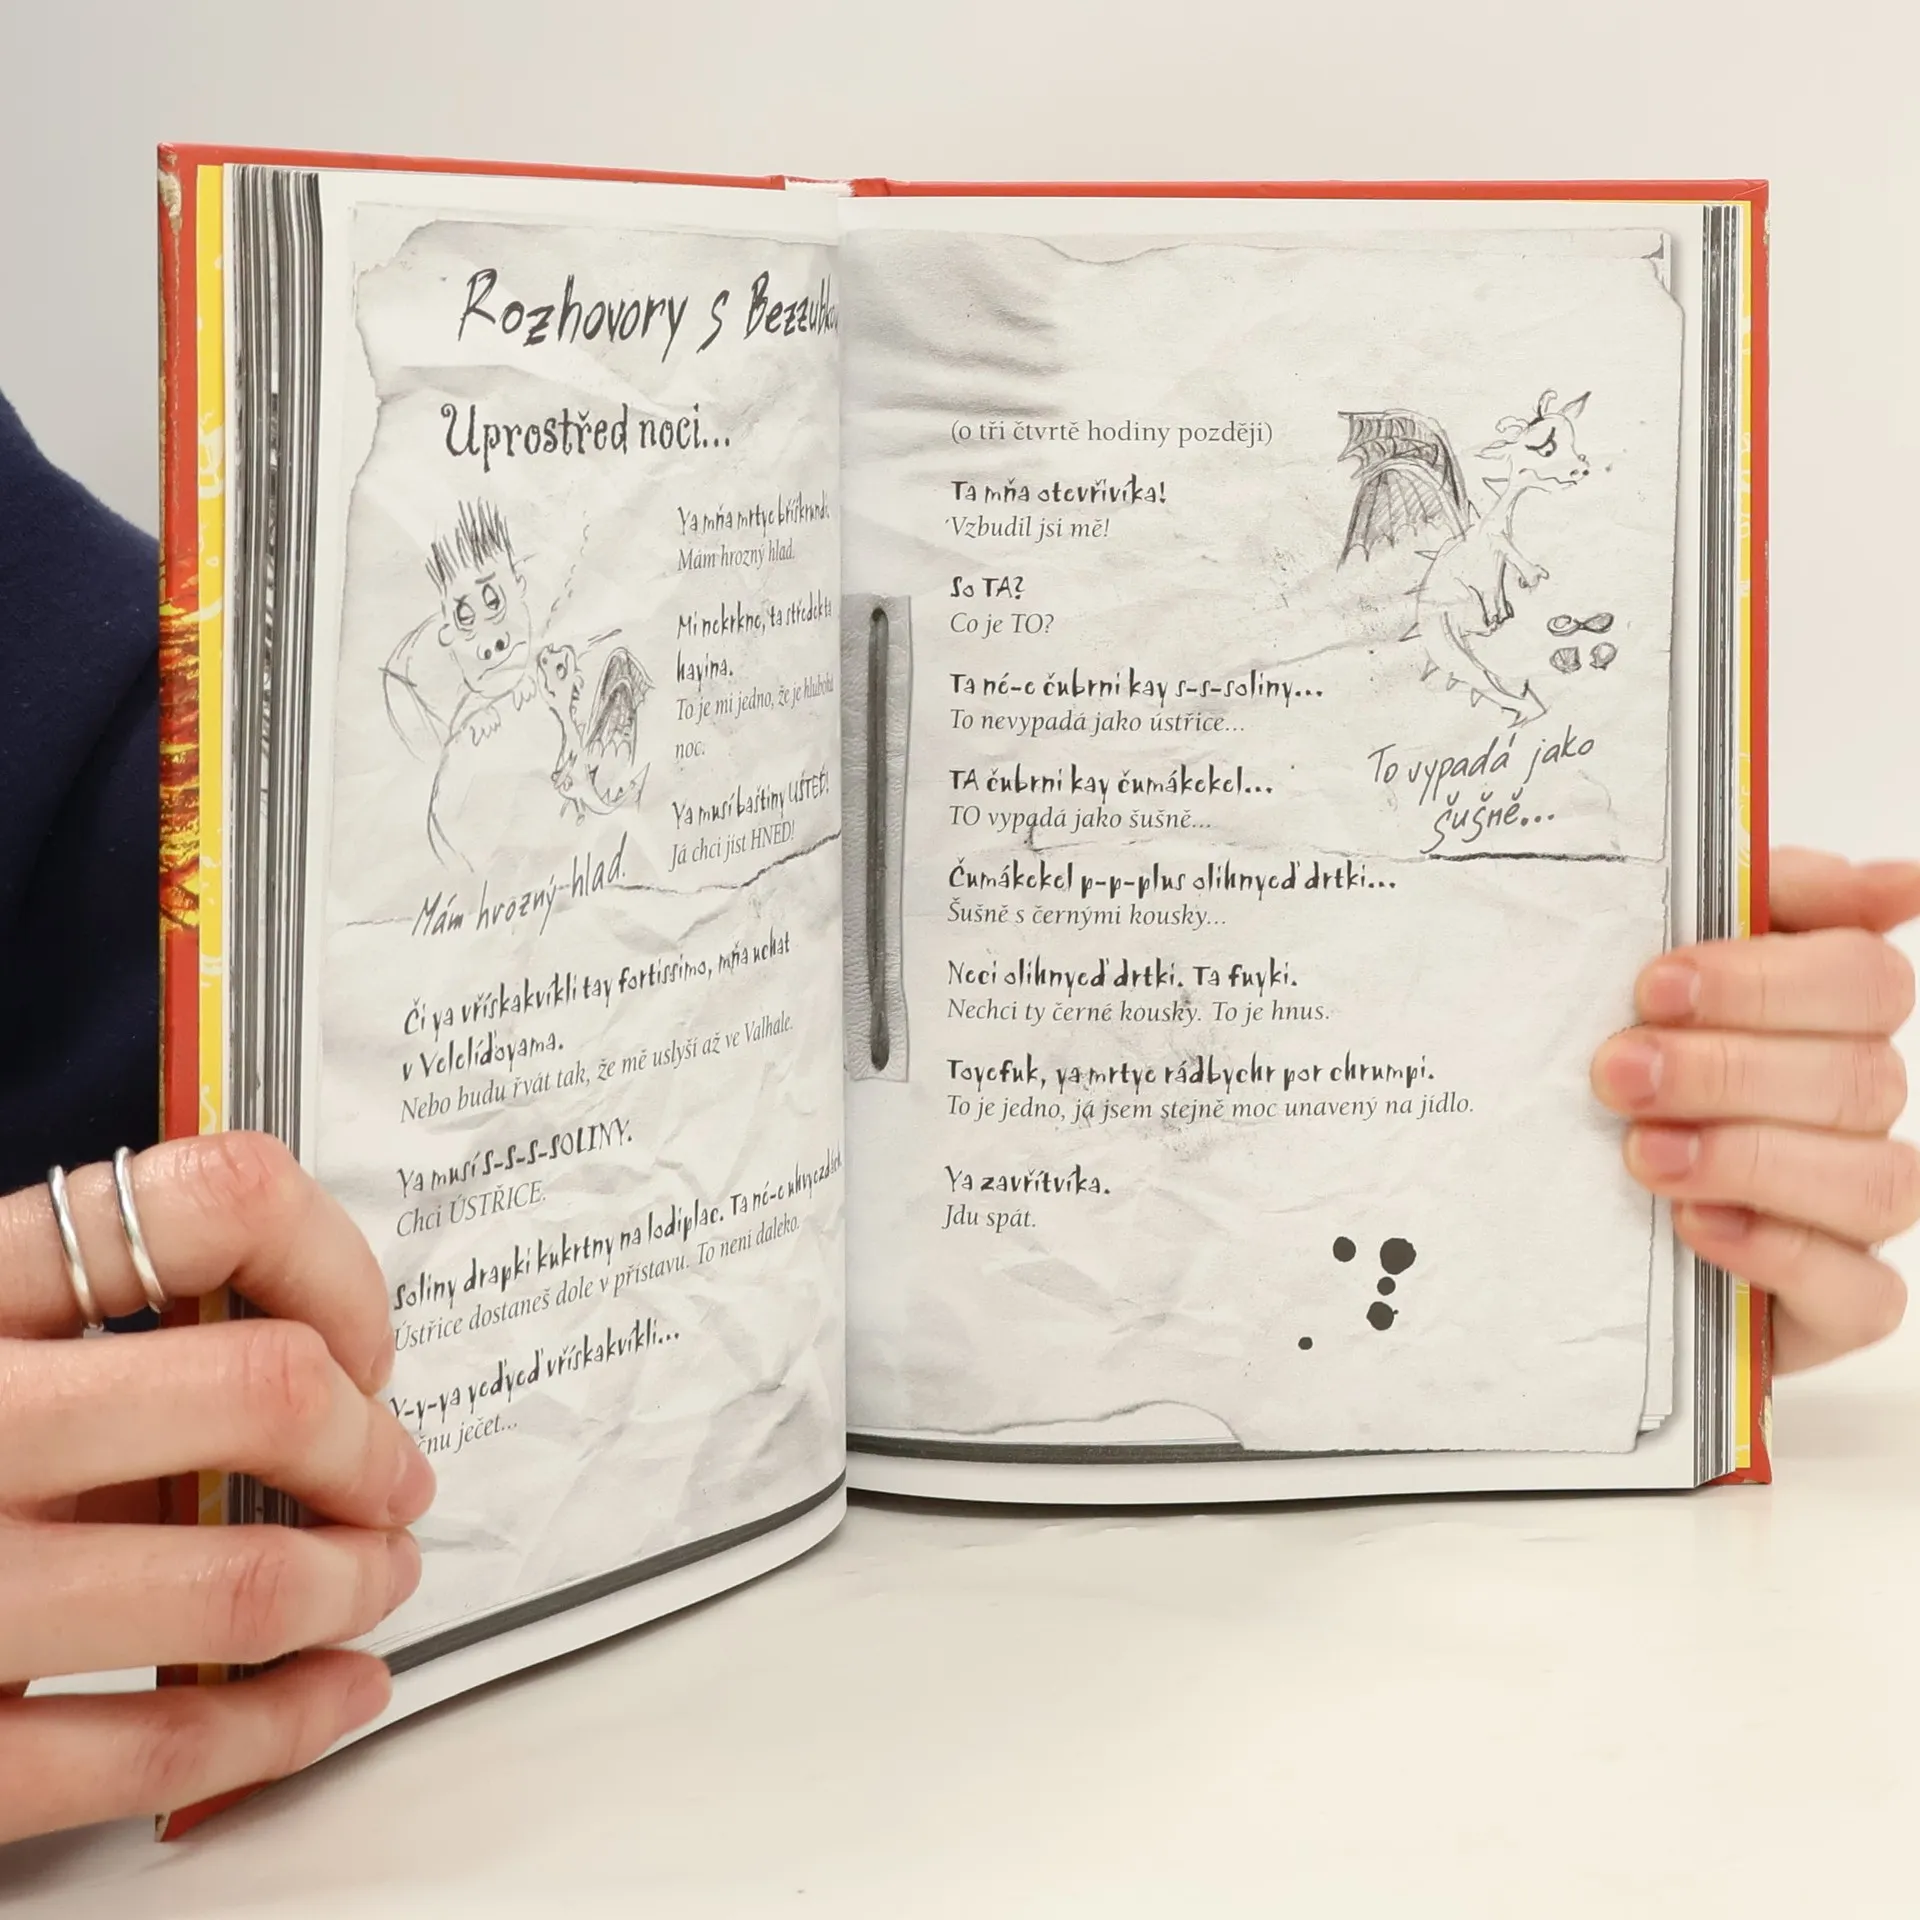 Rozhovory s
Uprostřed noci...
Ya mňa mrtye
Mám hrozný hlad.
Mi nekrkne, ta
hayina.
To je mi jedno, že je
noc.
Ya musí baštiny UŠTEĎ!
Já chci jíst HNED!
Mám hrozný hlad.
Či ya vřískakvíkli tay fortissimo, mňa uchat
v Velelíďoyama.
Nebo budu řvát tak, že mě uslyší až ve Valhale.
Ya musí S-S-S-SOLINY.
Chci ÚSTŘICE.
Soliny drapki kukrtny na lodiplac. Ta né-e
Ústřice dostaneš dole v přístavu. To není daleko.
Y-y-ya yeďyeď vřískakvíkli...
ječet...
(o tři čtvrtě hodiny později)
Ta mňa otevřivíka!
Vzbudil jsi mě!
So TA?
Co je TO?
Ta né-e čubrni kay s-s-soliny...
To nevypadá jako ústřice...
TA čubrni kay čumákekel...
TO vypadá jako šušně...
To vypadá jako
šušně...
Čumákekel p-p-plus olihnyeď drtki...
Šušně s černými kousky...
Neci olihnyeď drtki. Ta fuyki.
Nechci ty černé kousky. To je hnus.
Toyefuk, ya mrtye rádbychr por chrumpi.
To je jedno, já jsem stejně moc unavený na jídlo.
Ya zavřítvíka.
Jdu spát.